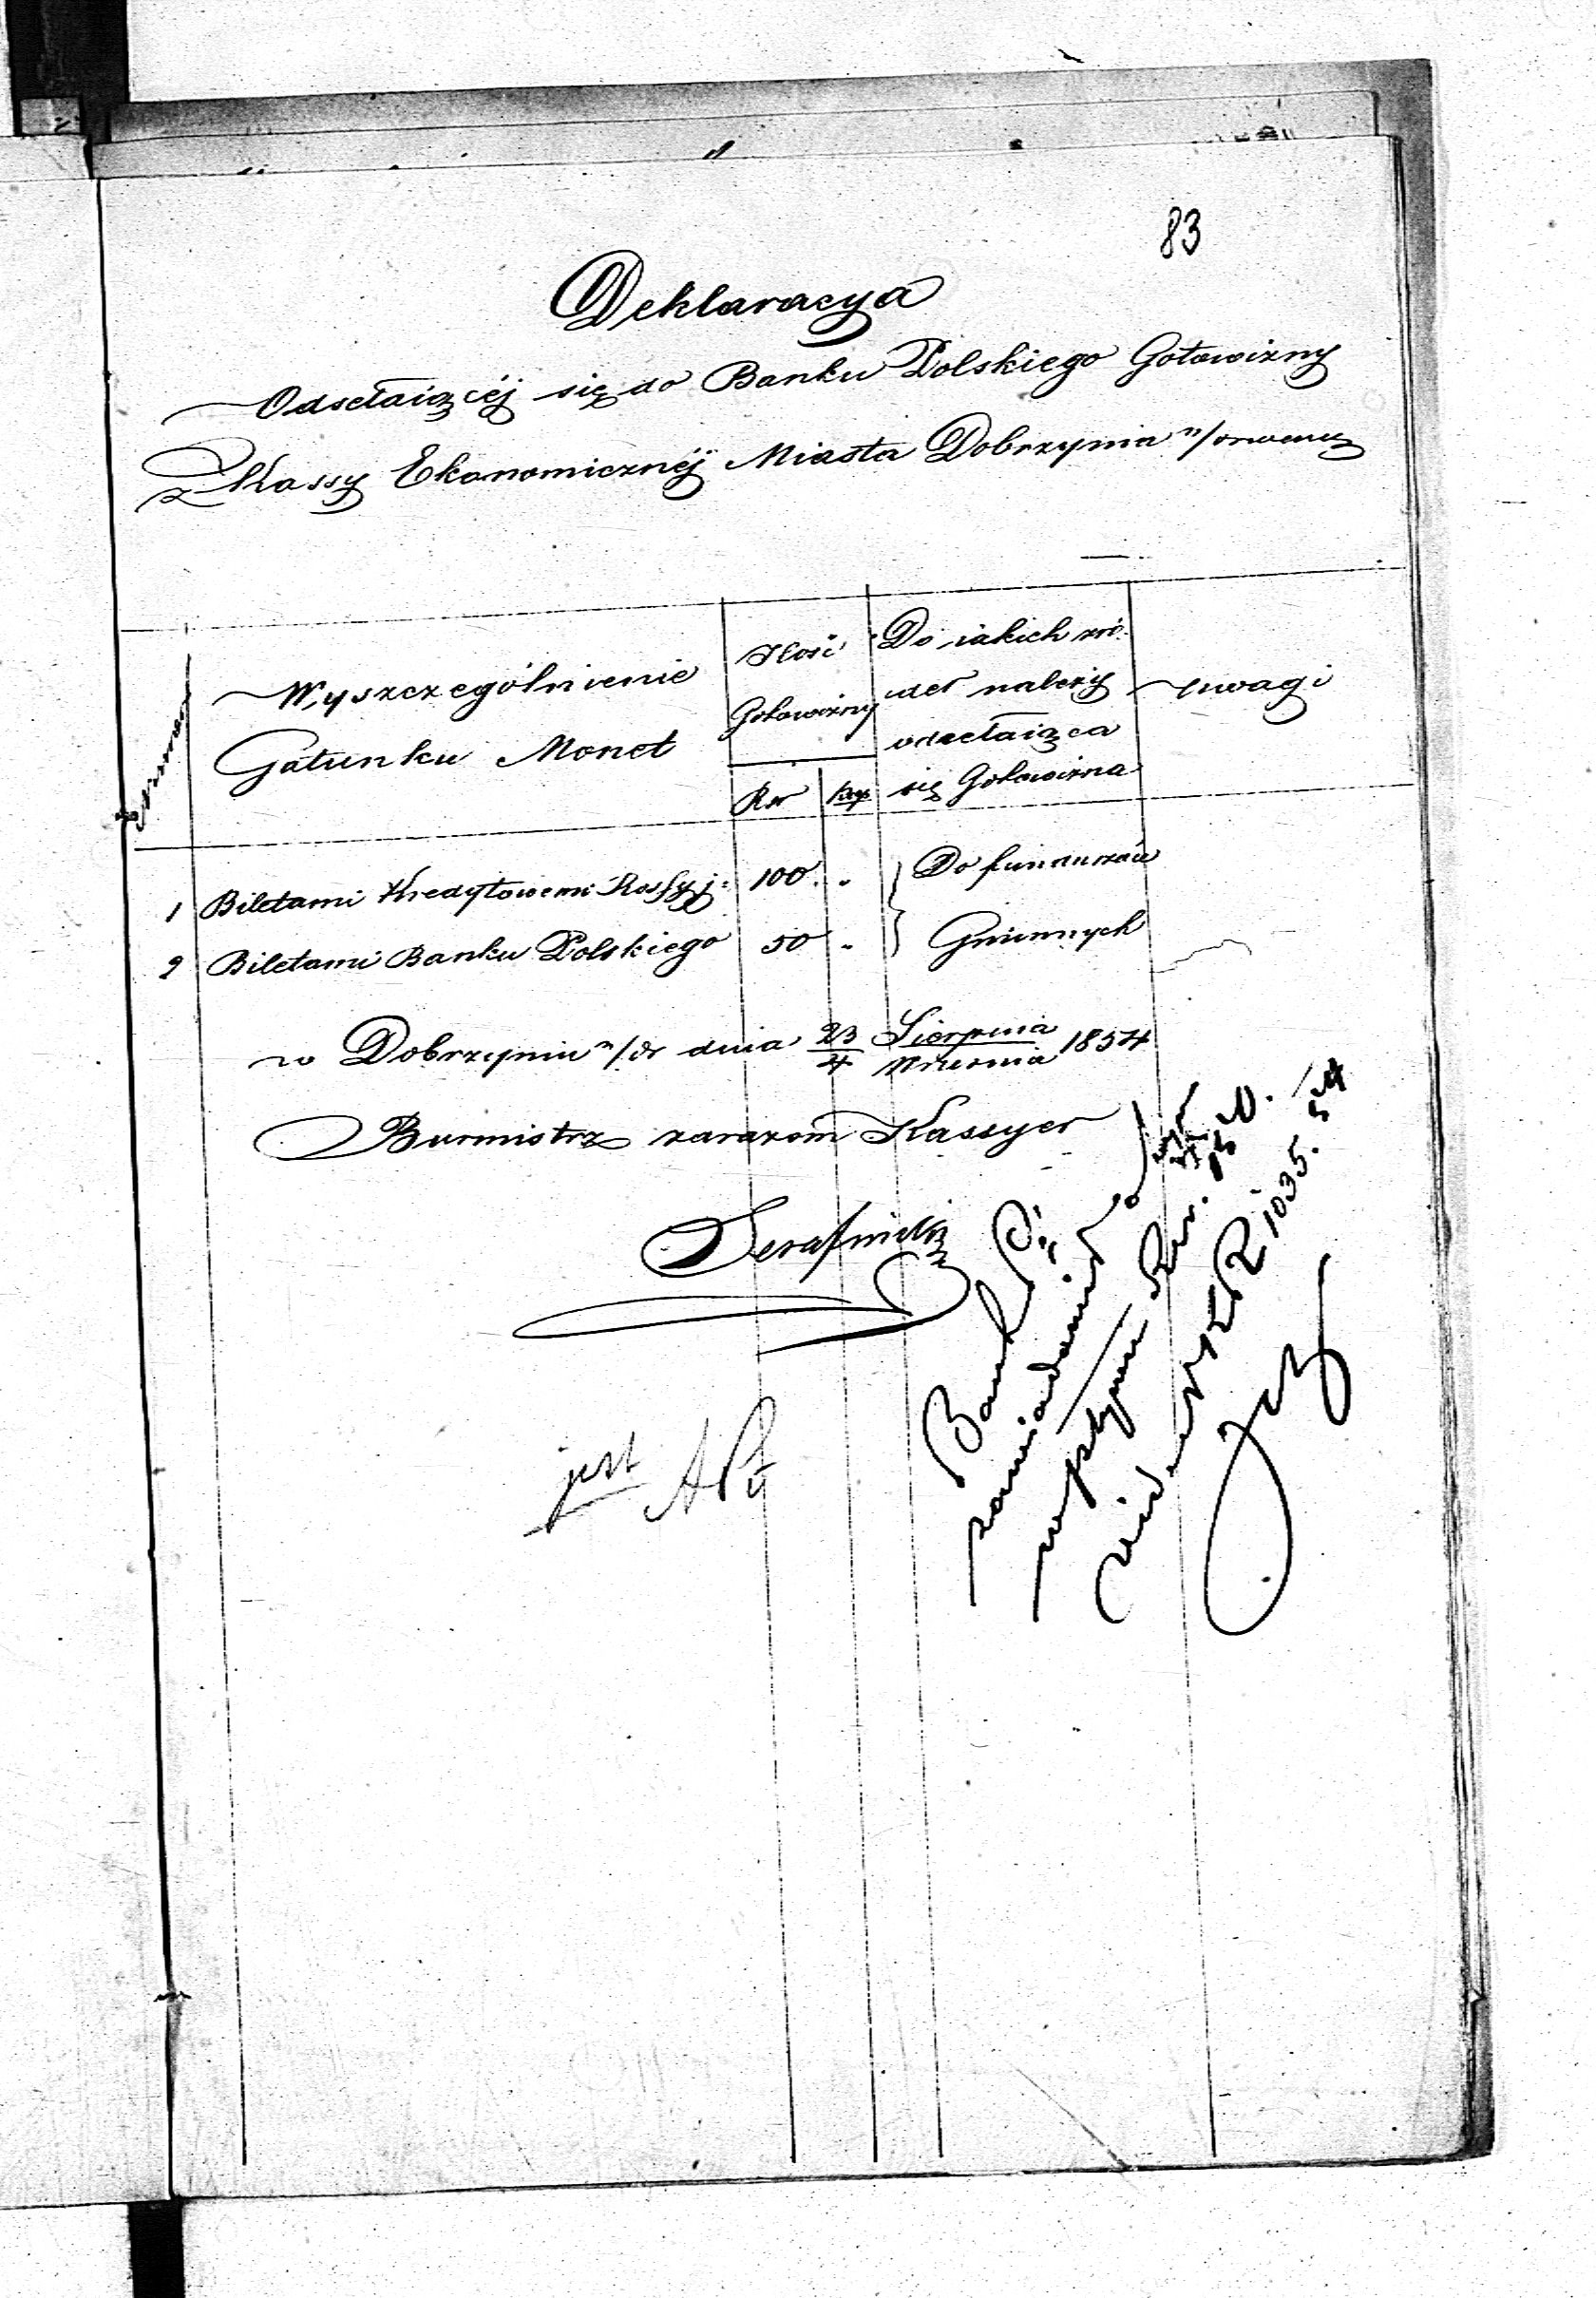 83
Deklaracya
Odsełaiącéj się do Banku Polskiego Gotowizny
z Kassy Ekonomicznéj Miasta Dobrzynia n/Drwencą
Wyszczególnienie
Gatunku Monet
Ilość
Gotowizny
Rsr Kop
Do iakich źró
deł należy
odsełaiąca
się Gotowizna
uwagi
1 Biletami Kredytowemi Rossyj: 100 . "
2 Biletami Banku Polskiego 50 "
Do funduszów
Gminnych
w Dobrzyniu n/Dr dnia 23/4 Sierpnia/Września 1854
Burmistrz zarazem Kassyer
jest
Bank P.
zawiadamia o
wpłynie Rsr. 150.
1035. 54